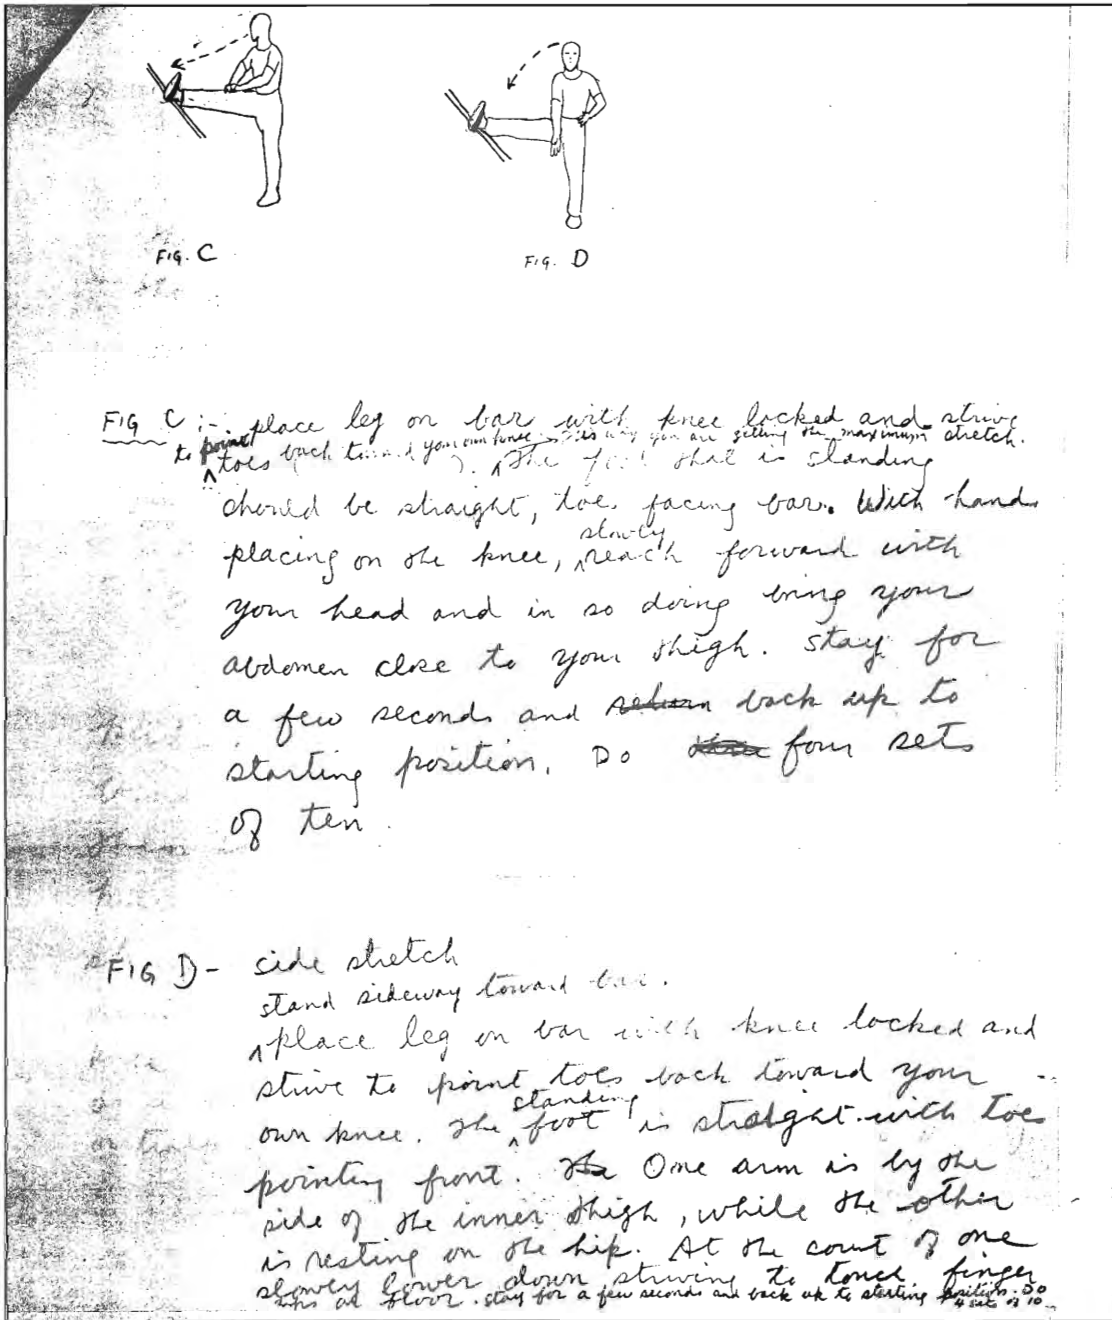 FIG. C
FIG. D
FIG C :- place leg on bar with knee locked and strive
to point toes back toward your own knee this way you are getting the maximum stretch.
The foot that is standing
should be straight, toe facing bar. With hand
placing on the knee, slowly reach forward with
your head and in so doing bring your
abdomen close to your thigh. Stay for
a few seconds and return back up to
starting position. Do four sets
of ten.
FIG D - side stretch
stand sideway toward bar.
place leg on bar with knee locked and
strive to point toes back toward your
own knee. The standing foot is straight with toe
pointing front. The One arm is by the
side of the inner thigh, while the other
is resting on the hip. At the count of one
slowly lower down striving to touch finger
at floor. stay for a few seconds and back up to starting position. Do
4 sets of 10